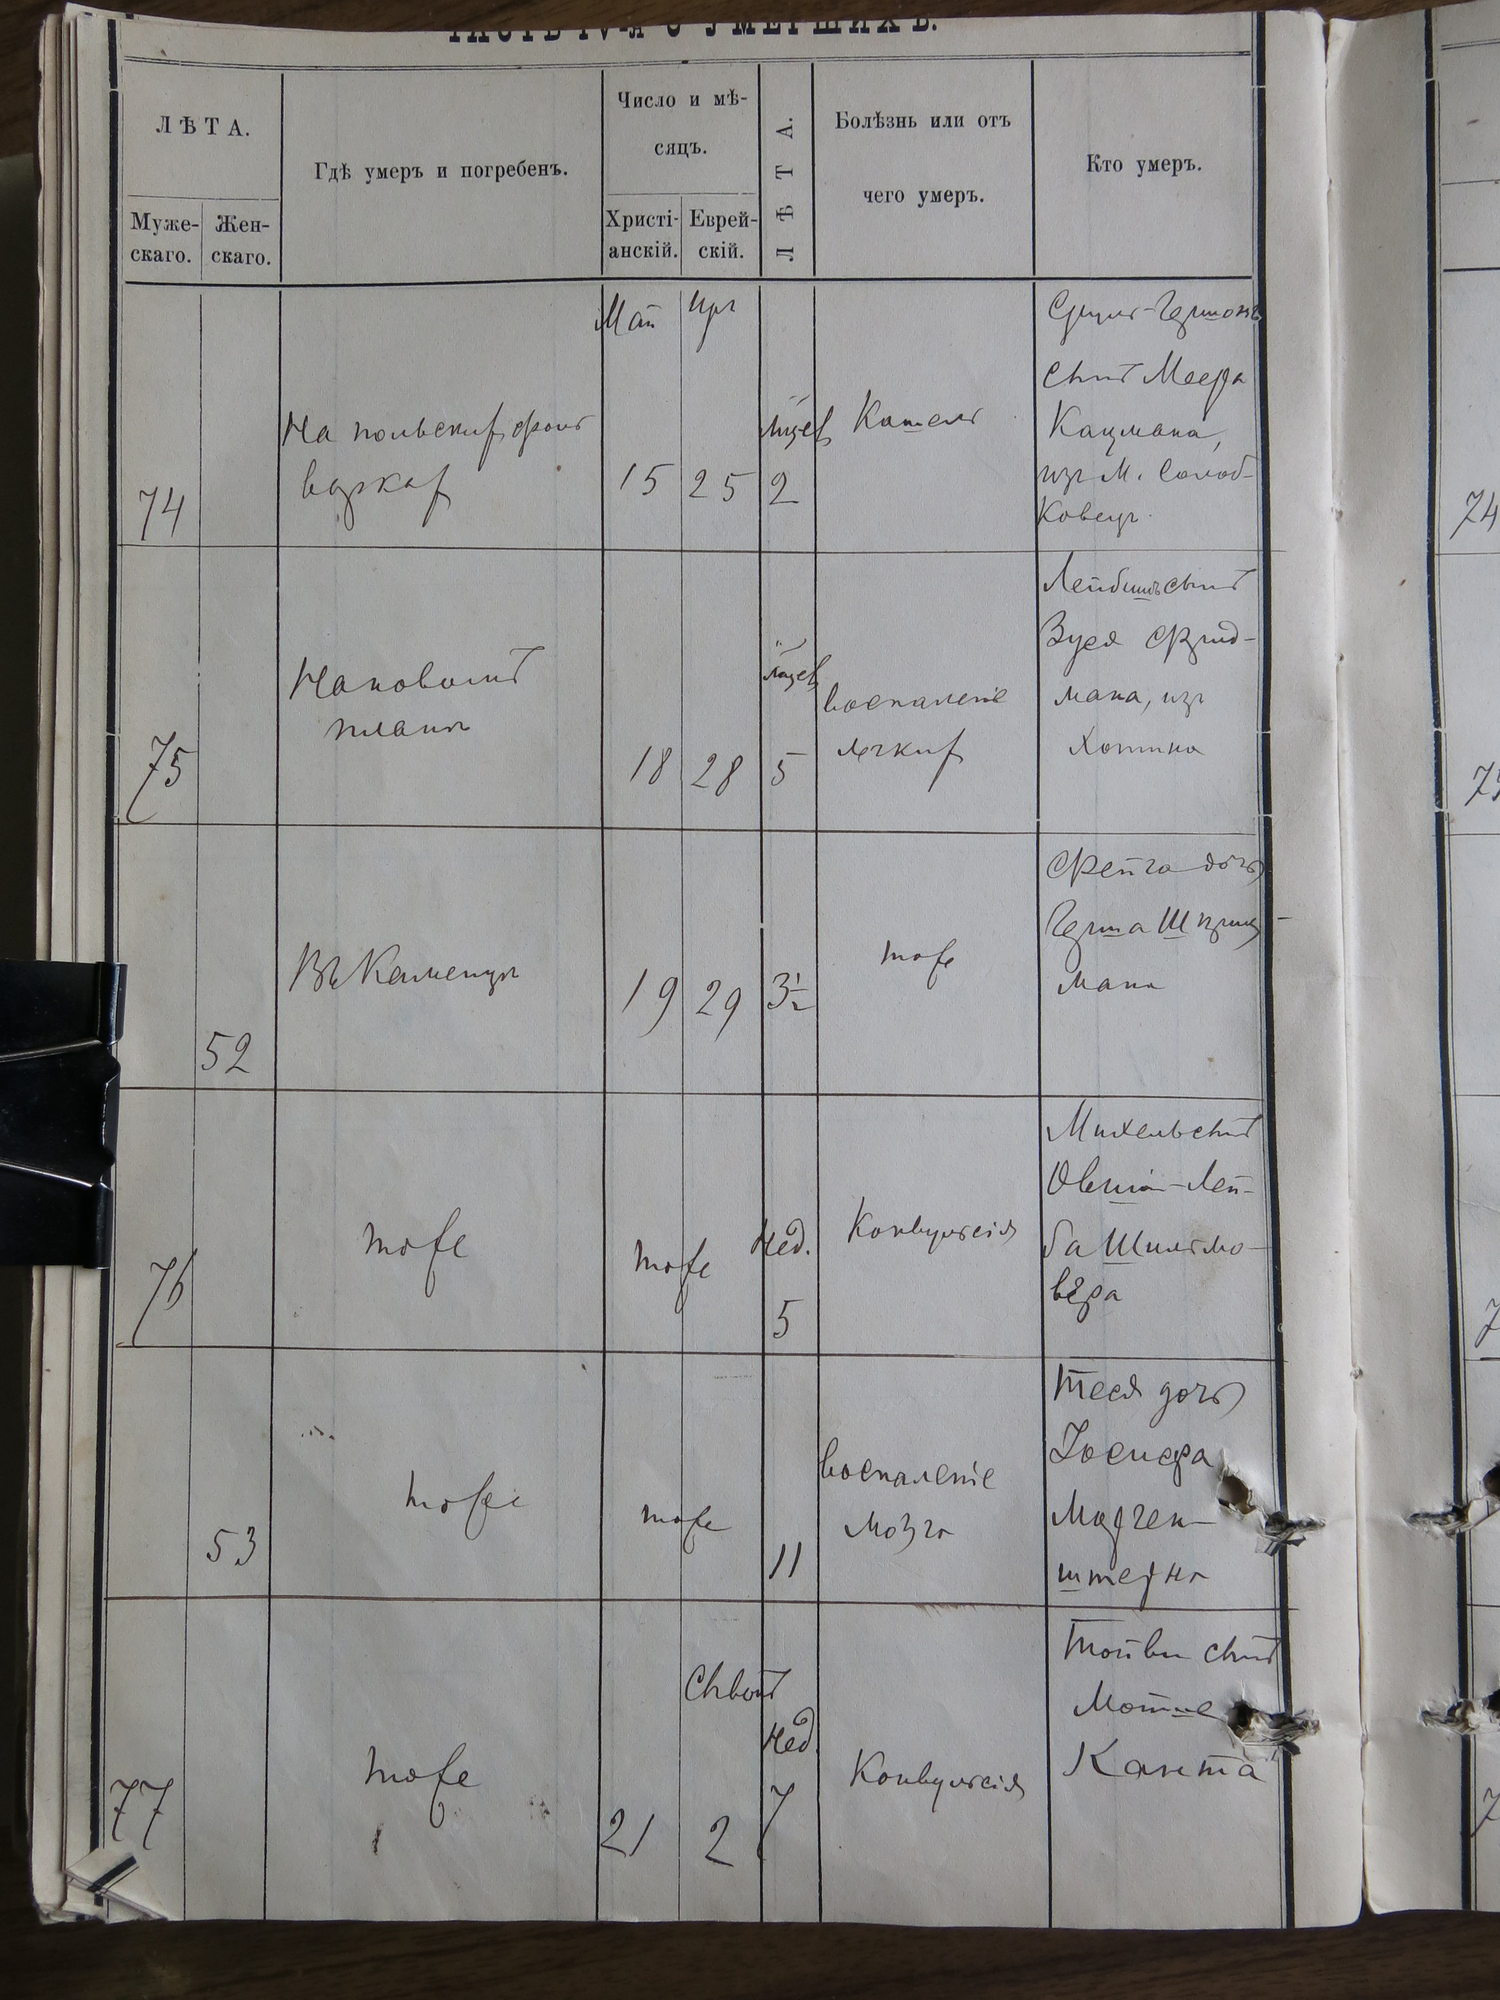 ЧАСТЬ IV-я О УМЕРШИХЪ.
ЛѢТА.
Муже-
скаго.
Жен-
скаго.
Гдѣ умеръ и погребенъ.
Число и мѣ-
сяцъ.
Христі-
анскій.
Еврей-
скій.
ЛѢТА.
Болѣзнь или отъ
чего умеръ.
Кто умеръ.
74
На польских фоль
варках
Май
15
Ира
25
мцев
2
Кашель
Сруль-Гершонъ
сынъ Меера
Кацмана,
из м. Солоб-
ковец
74
75
На новомъ
плане
18
28
мцев
5
воспаленіе
легких
Лейбишъ сынъ
Зуся Фрид-
мана, из
Хотина
52
Въ Каменце
19
29
3½
тоже
Фейга дочь
Герша Шприц-
мана
76
тоже
тоже
нед.
5
Конвульсія
Михель сынъ
Овшія-Лей-
ба Шильмо-
вера
53
тоже
тоже
11
воспаленіе
мозга
Тося дочь
Іосифа
Морген-
штерна
77
тоже
21
Сывонъ
2
нед.
7
Конвульсія
Тойви сынъ
Мотте
Канта